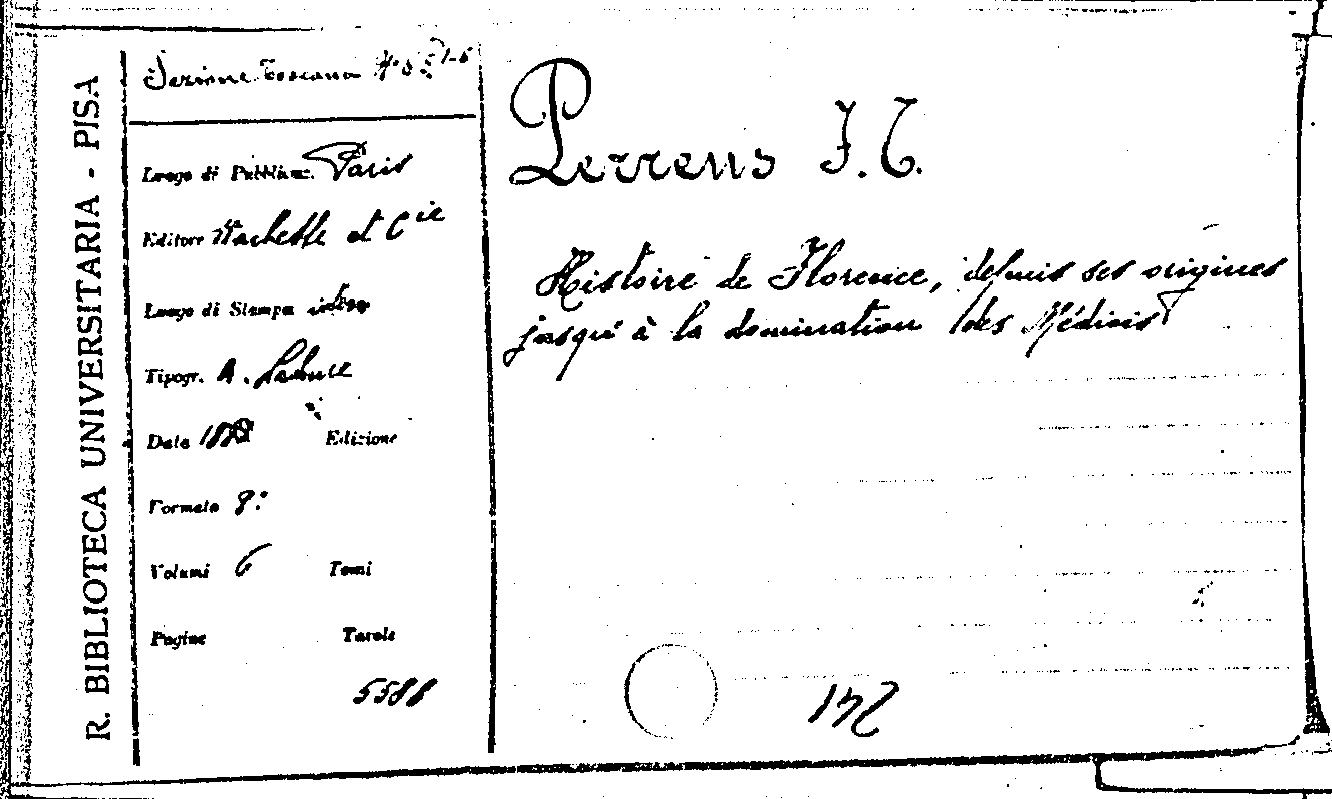 R. BIBLIOTECA UNIVERSITARIA - PISA
Sezione Toscana
Luogo di Pubblicaz. Paris
Editore Hachette et Cie
Luogo di Stampa
Tipogr. A. Lahure
Data Edizione
Formato 8:
Volumi 6 Tomi
Pagine Tavole
5588
Perrens F. T.
Histoire de Florence, depuis ses origines
jusqu'à la domination des Médicis
241